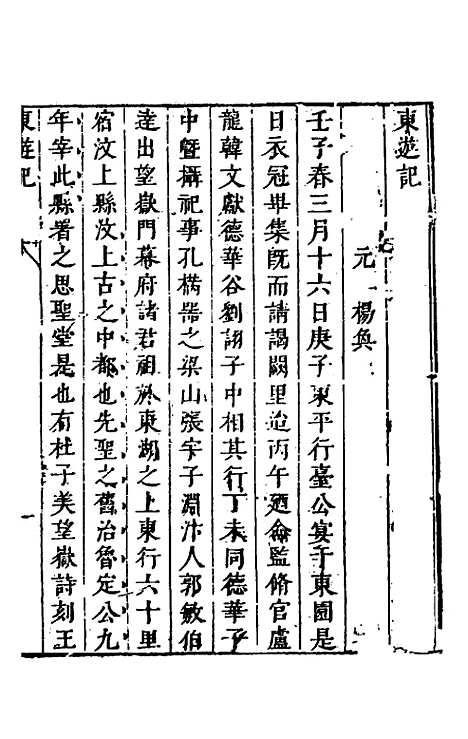 東遊記
元 楊奐
壬子春三月十六日庚子東平行臺公宴于東園是
日衣冠畢集旣而請謁闕里迨丙午廼命監脩官盧
龍韓文獻德華谷劉詡子中相其行丁未同德華子
中暨攝祀事孔㮣器之梁山張宇子淵汴人郭敏伯
達出望嶽門幕府諸君祖於東湖之上東行六十里
宿汶上縣汶上古之中都也先聖之舊治魯定公九
年宰此縣署之思聖堂是也有杜子美望嶽詩刻王
東遊記
一